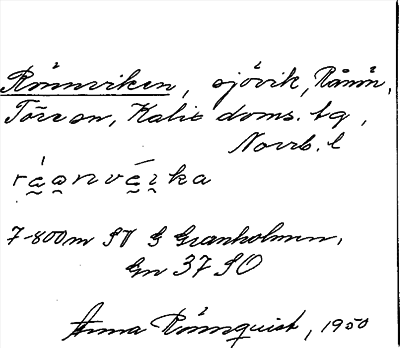 Rönnviken, sjövik, Rånön,
Töre sn, Kalix doms. tg,
Norrb. l
7-800m SV G Granholmen,
Gn 37 SO
Anna Rönnquist, 1950